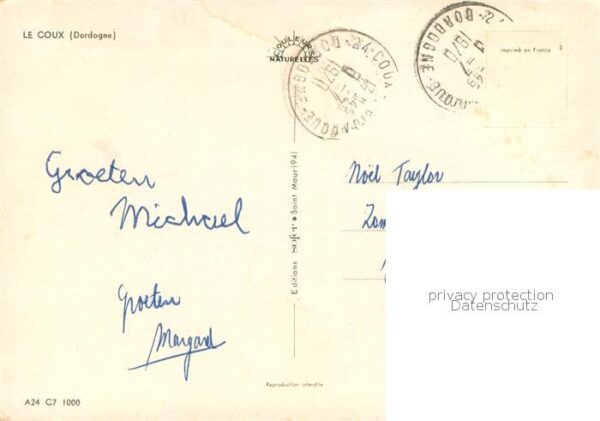 LE COUX (Dordogne)
COULEURS
NATURELLES
24-COUX
DORDOGNE
1970
DORDOGNE
1970
Imprimé en France
Groeten
Michael
groeten
Margard
Editions "SOFI" ★ Saint Maur (94)
Noël Taylor
privacy protection
Datenschutz
Reproduction interdite
A24 C7 1000